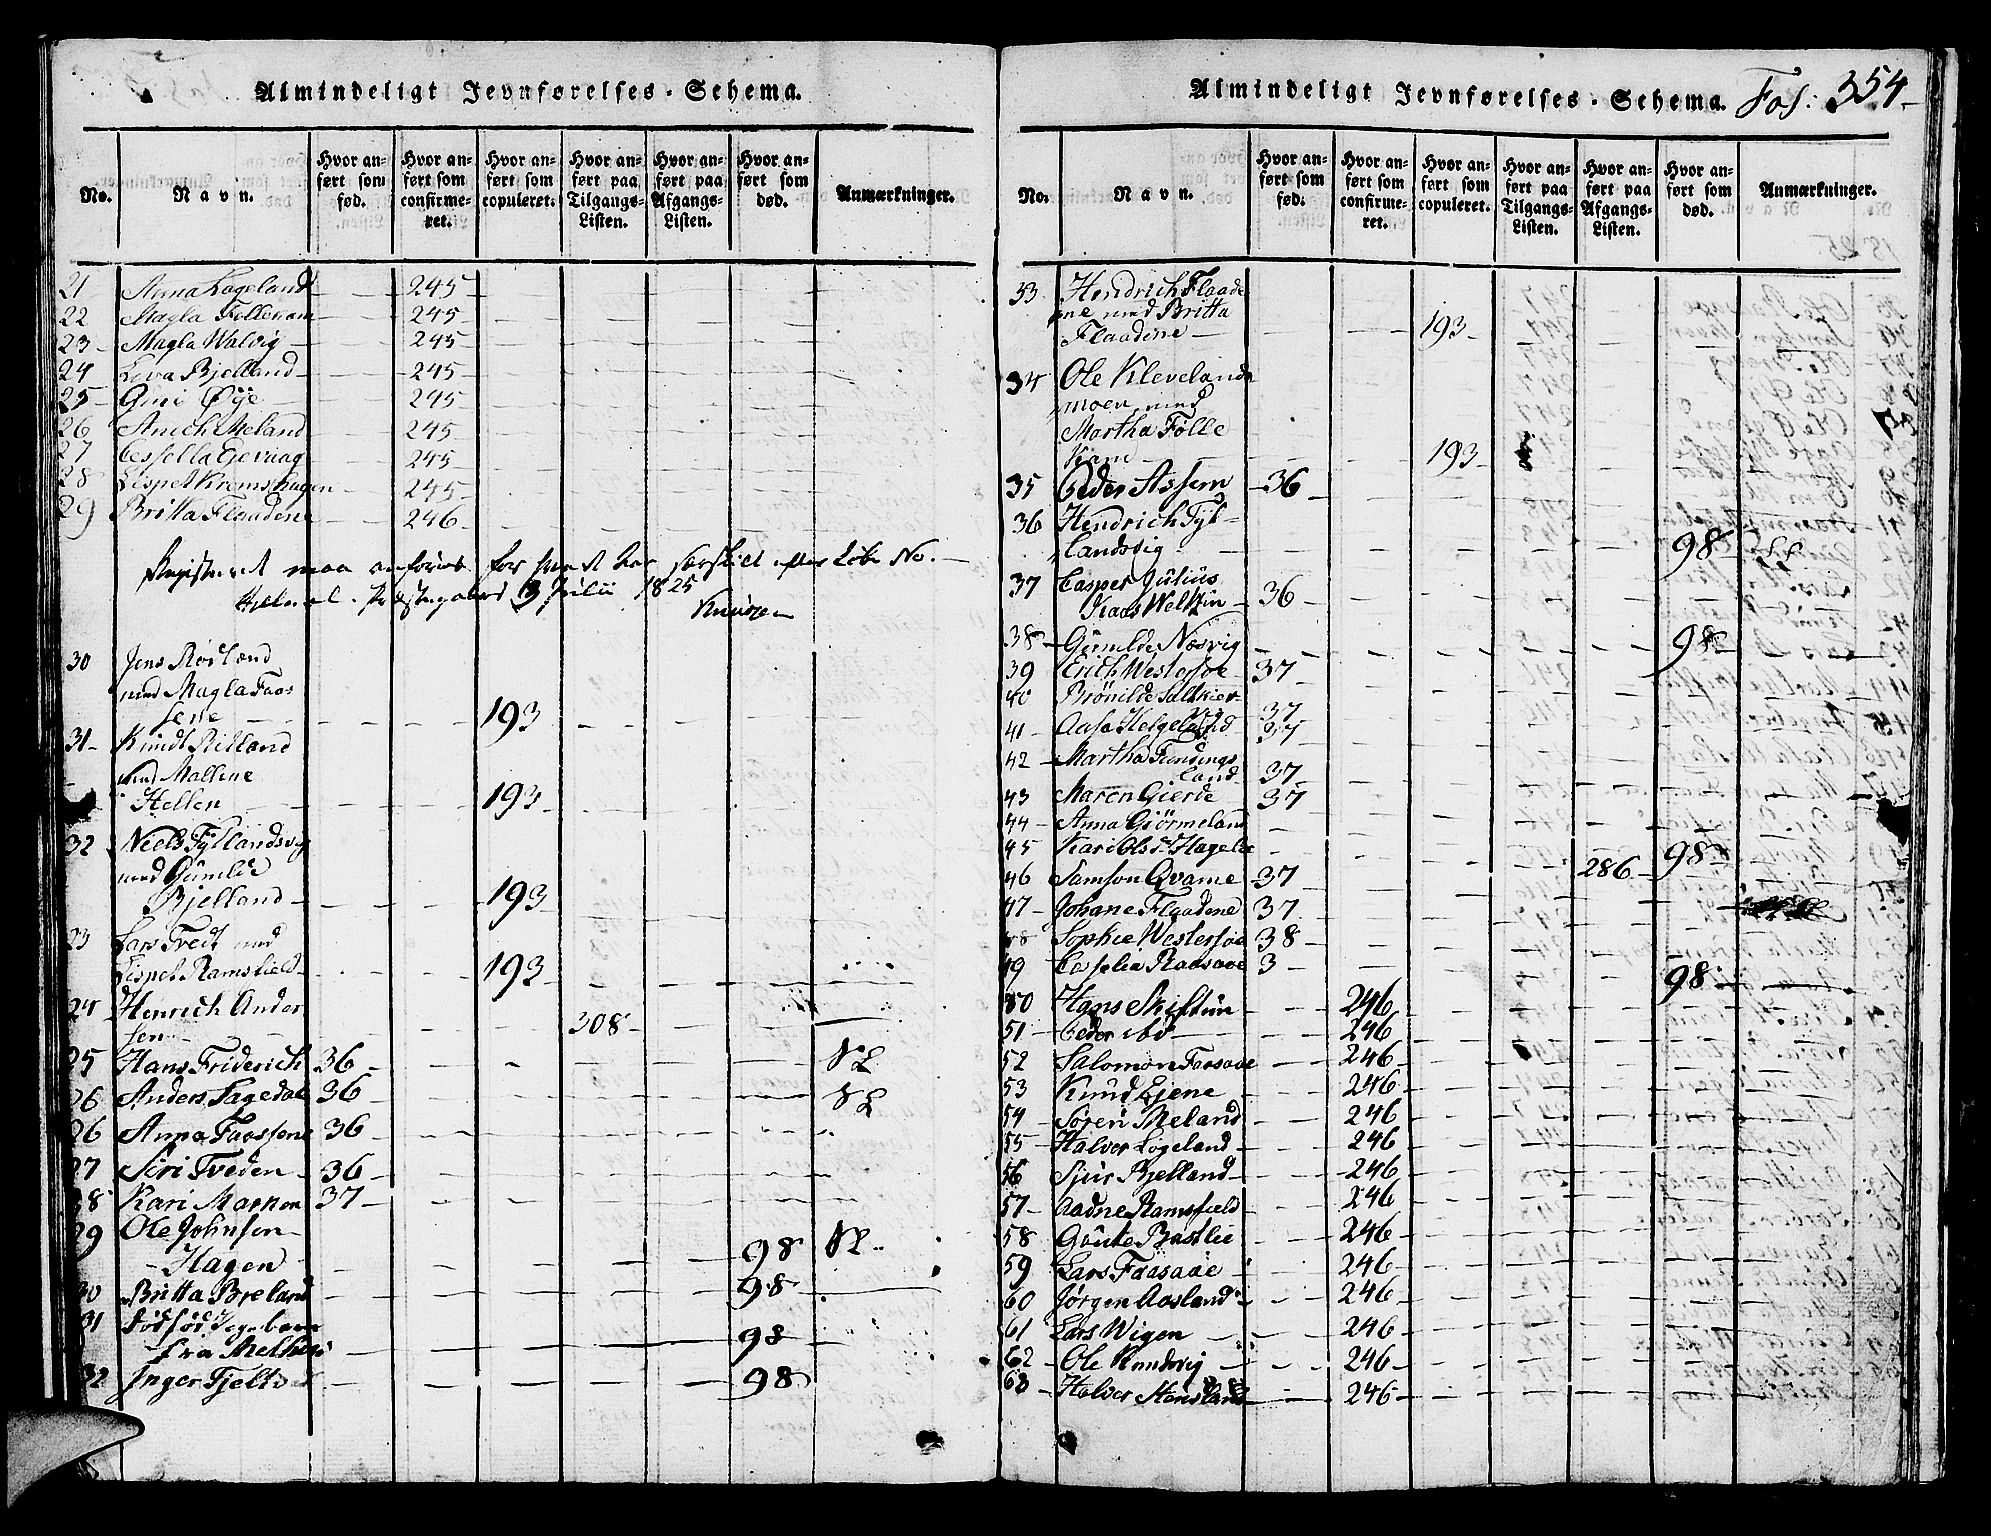 Almindeligt Jevnførelses-Schema.
No. Navn. Hvor anført som fød. Hvor anført som confirmeret. Hvor anført som copuleret. Hvor anført paa Tilgangs-Listen. Hvor anført paa Afgangs-Listen. Hvor anført som død. Anmærkninger.
21 Anna Lageland 245
22 Magla Follevam 245
23 Magla Walvig 245
24 Leva Bjelland 245
25 Guri Øye 245
26 Anich Meland 245
27 Cessella Gervaag 245
28 Lispet Kromshagen 245
29 Britta Flaadene 246
Registeret maa anføres for hvad har efter Løbe No.
3 Julii 1825
30 Jens Rørland
med Magla Faas
sene 193
31 Knudt Birland
med Mallene
Hellen 193
32 Niels Fyllandsvig
med Gunilde
Bjelland 193
23 Lars Tvedt med
Lispet Ramsfield 193
24 Henrich Ander
sen 308
25 Hans Friderich 36
26 Anders Sagedal 36
26 Anna Faassene 36
27 Siri Tveden 36
28 Kari Marken 37
29 Ole Johnsen
Hagen 98
30 Britta Breland 98
31 Dødfød
fra 98
32 Inger Fjeltv 98
Almindeligt Jevnførelses-Schema. Fol: 354
No. Navn. Hvor anført som fød. Hvor anført som confirmeret. Hvor anført som copuleret. Hvor anført paa Tilgangs-Listen. Hvor anført paa Afgangs-Listen. Hvor anført som død. Anmærkninger.
33 Hendrich Flaade
ne med Britta
Flaadene 193
34 Ole Klevelands
moen med
Martha Følle
Kam 193
35 Peder Assem 36
36 Hendrich Fyl
landsvig 98
37 Casper Julius
Klaas Weltzin 36
38 Gunilde Nesvig 98
39 Erich Westersøe 37
40 Brönilde Saltkier 37
41 Aasa Helgeland 37
42 Martha Tendings
land 37
43 Maren Gierde 37
44 Anna Giörmeland
45 Kari Olsdr Hagelie 98
46 Samson Qvame 37 286
47 Johane Flaadene 37
48 Sophie Westersøe 38
49 Raasaae 3 98
50 Hans Skiftun 246
51 Peder 246
52 Salomon Faasaae 246
53 Knud Eiene 246
54 Søren Meland 246
55 Halver Lögeland 246
56 Sjur Bjelland 246
57 Aadne Ramsfield 246
58 Goute Bastlie 246
59 Lars Faasaae 246
60 Jørgen Aasland 246
61 Lars Wigen 246
62 Ole Rundvig 246
63 Halver Stensland 246